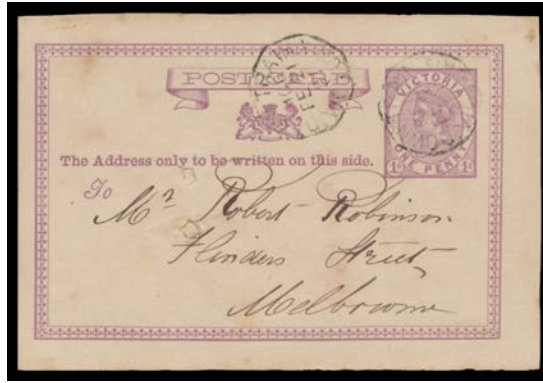 POST CARD
VICTORIA
ONE PENNY
1d 1d
The Address only to be written on this side.
To
Mr Robert Robinson
Flinders Street
Melbourne